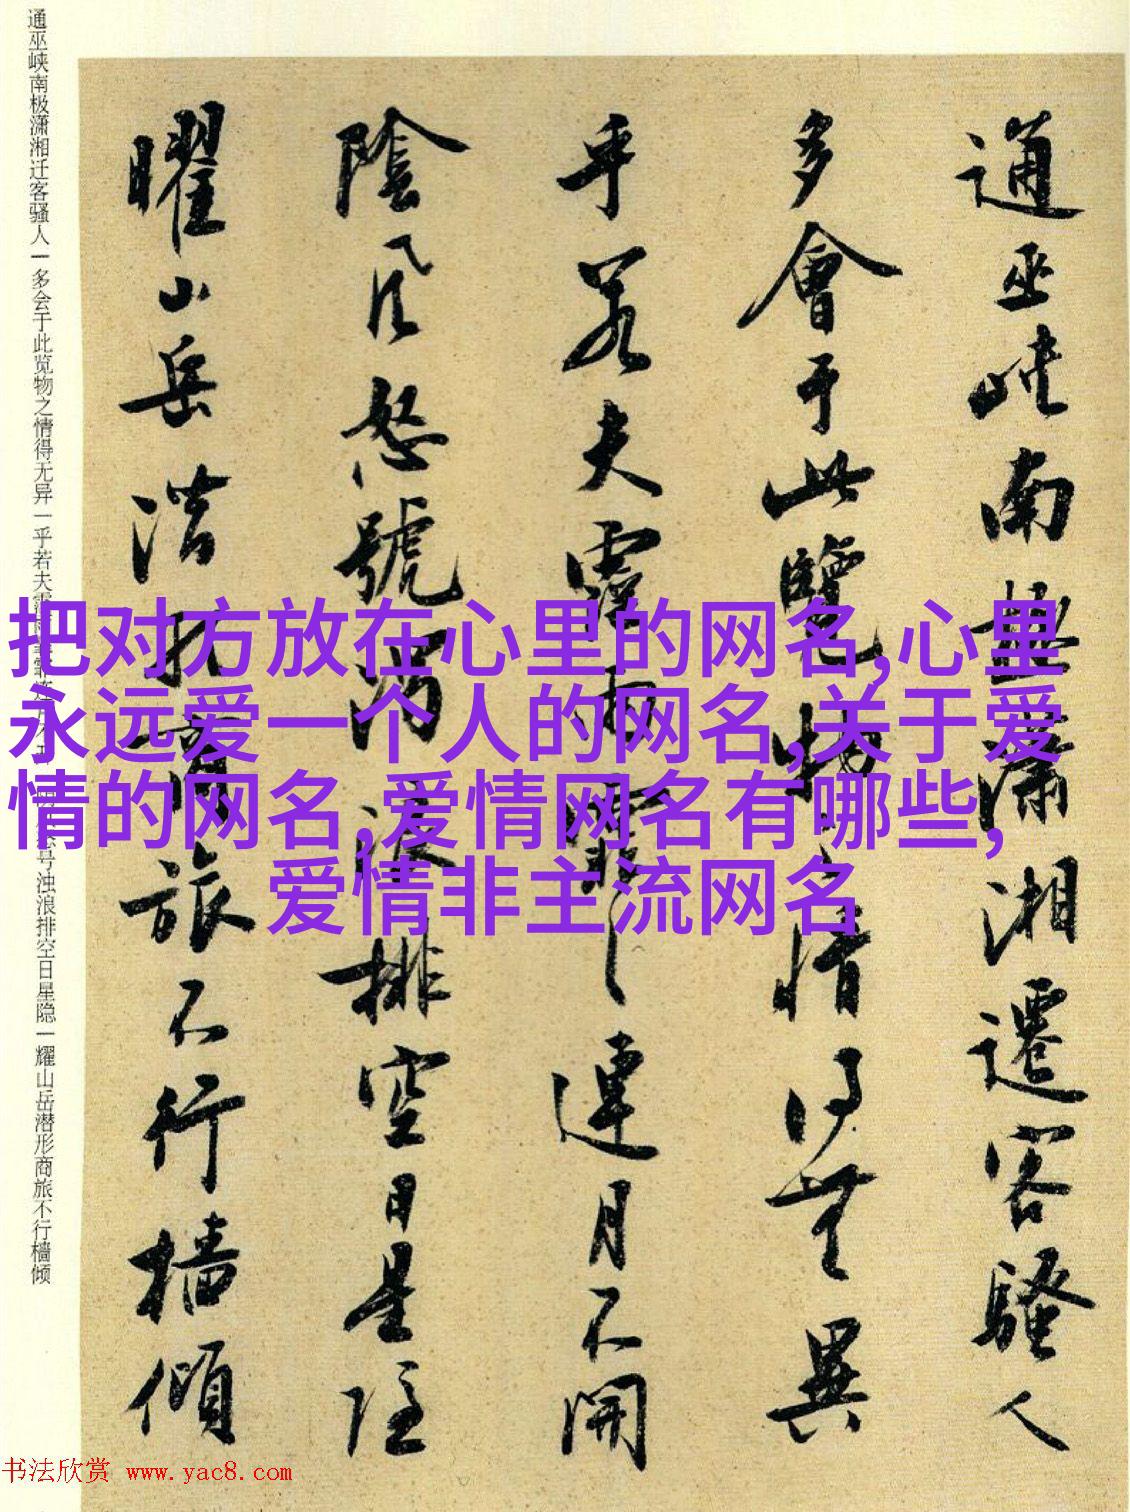 通巫峡南極瀟湘遷客騷人
多會于此覽物之情得無異
乎若夫霪雨霏〻連月不開
陰風怒號濁浪排空日星隱
曜山岳潛形商旅不行檣傾
通巫峡南极潇湘迁客骚人一多会于此览物之情得无异一乎若夫霪 号浊浪排空日星隐一耀山岳潜形商旅不行檣倾
把对方放在心里的网名,心里
永远爱一个人的网名,关于爱
情的网名,爱情网名有哪些,
爱情非主流网名
书法欣赏 www.yac8.com